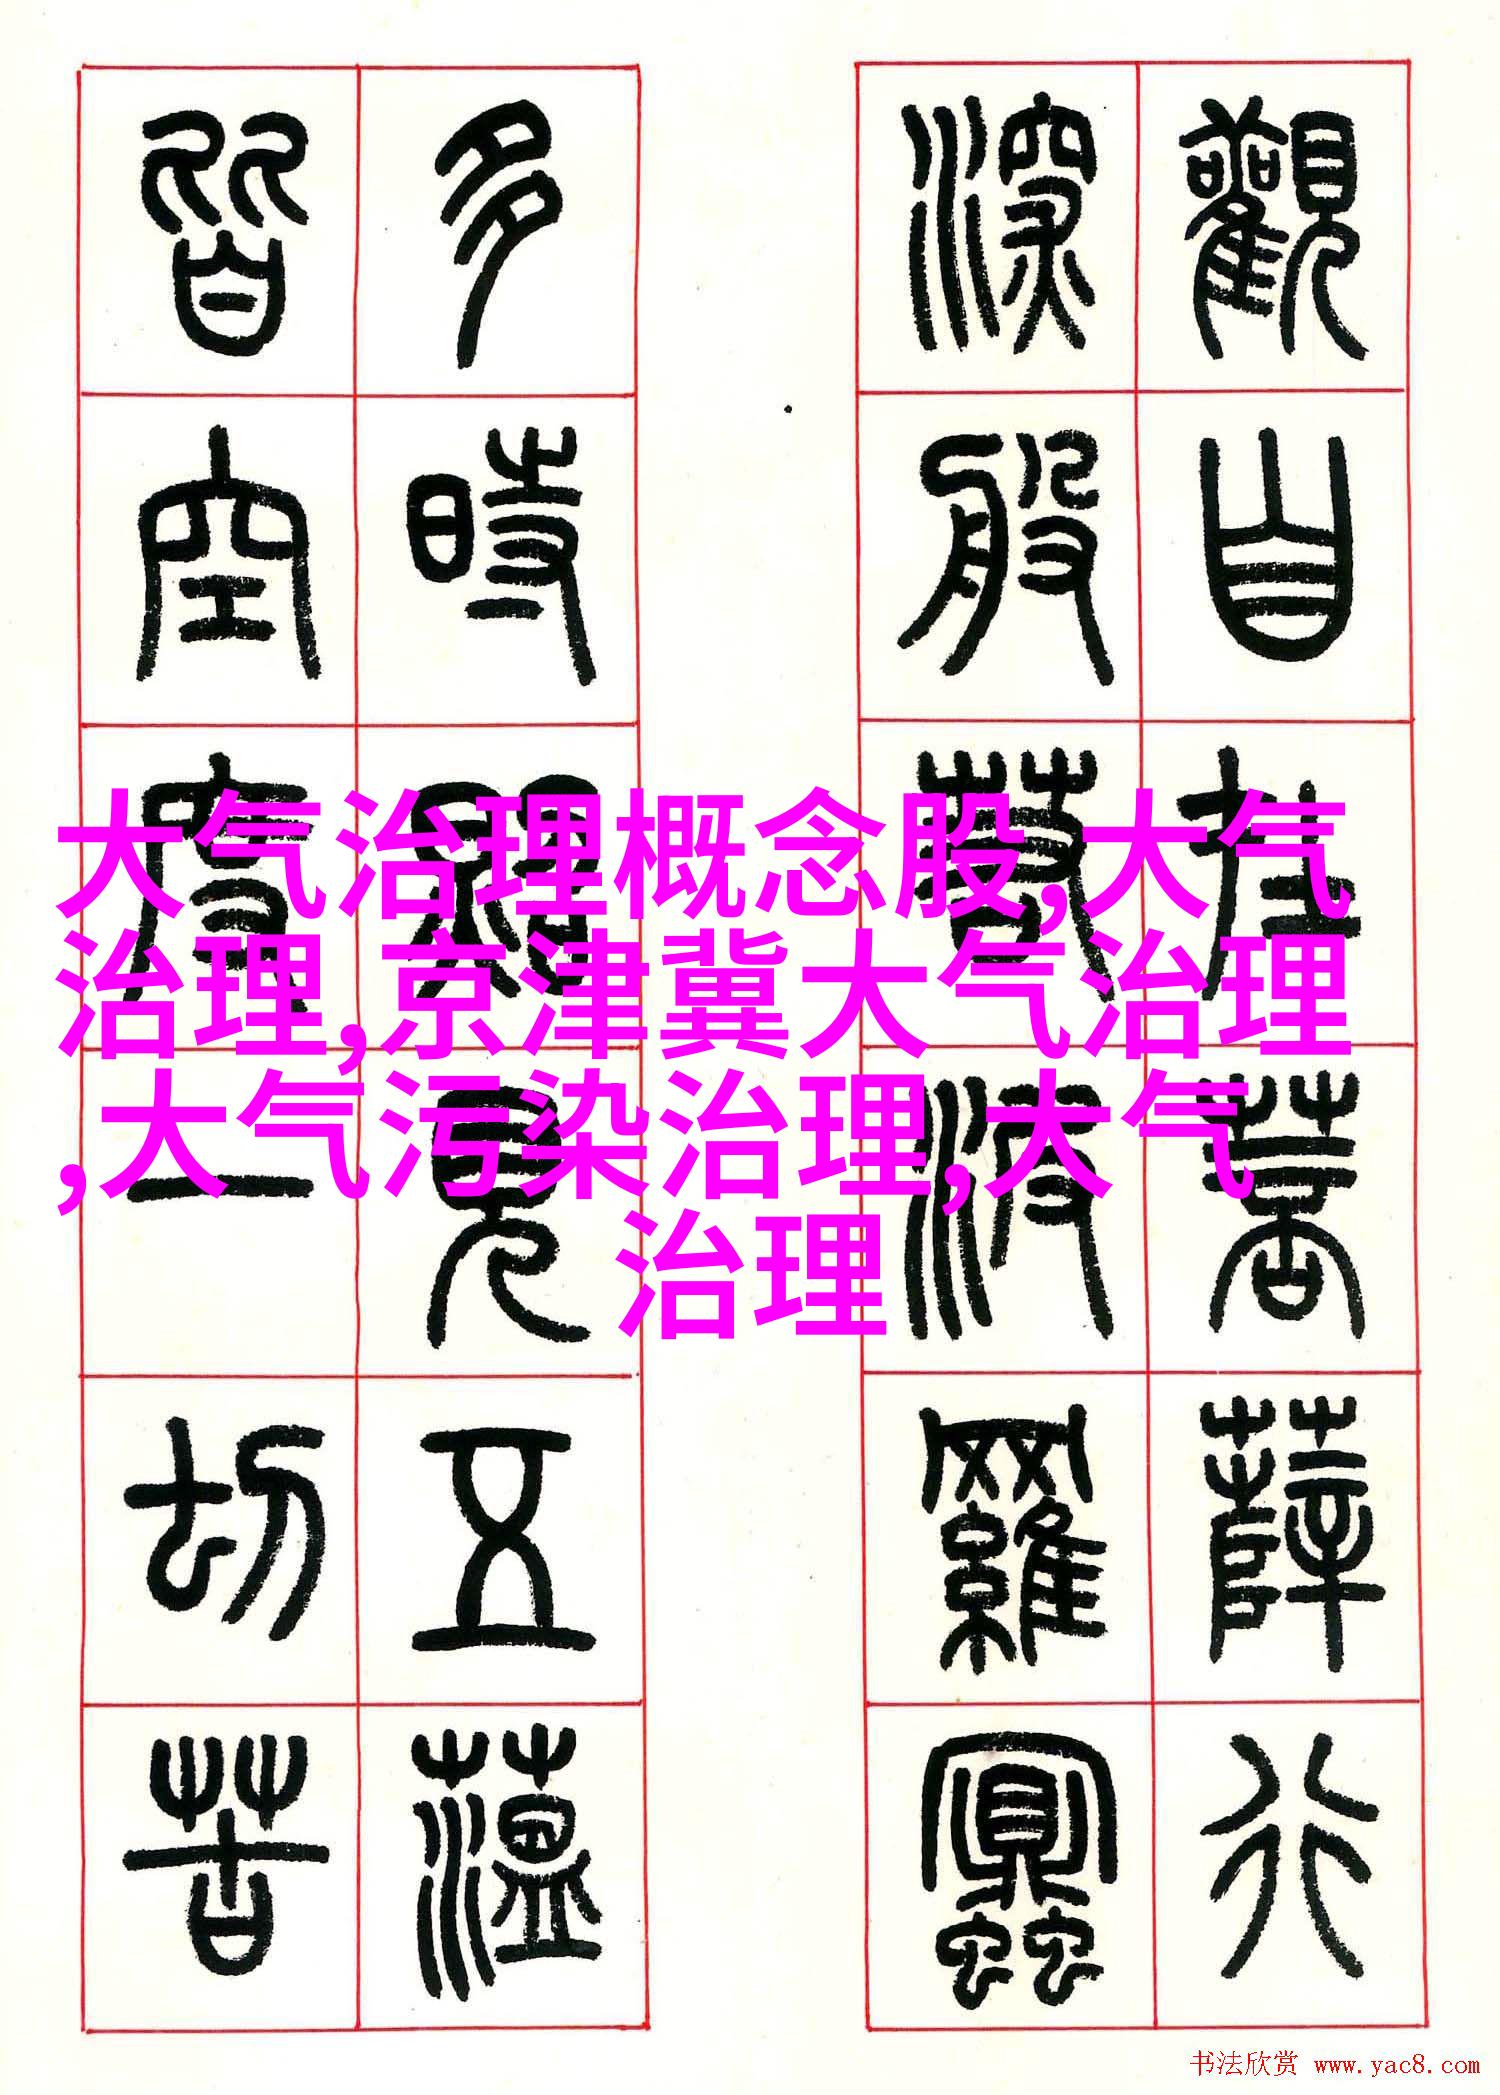 觀自在菩薩行
深般若波羅蜜
多時照見五蘊
皆空度一切苦
大气治理概念股,大气
治理,京津冀大气治理
,大气污染治理,大气
治理
书法欣赏 www.yac8.com